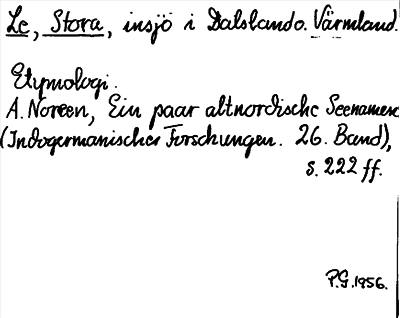 Le, Stora, insjö i Dalsland o. Värmland.
Etymologi.
A. Noreen, Ein paar altnordische Seenamen
(Indogermanische Forschungen. 26. Band),
s. 222 ff.
P.G. 1956.